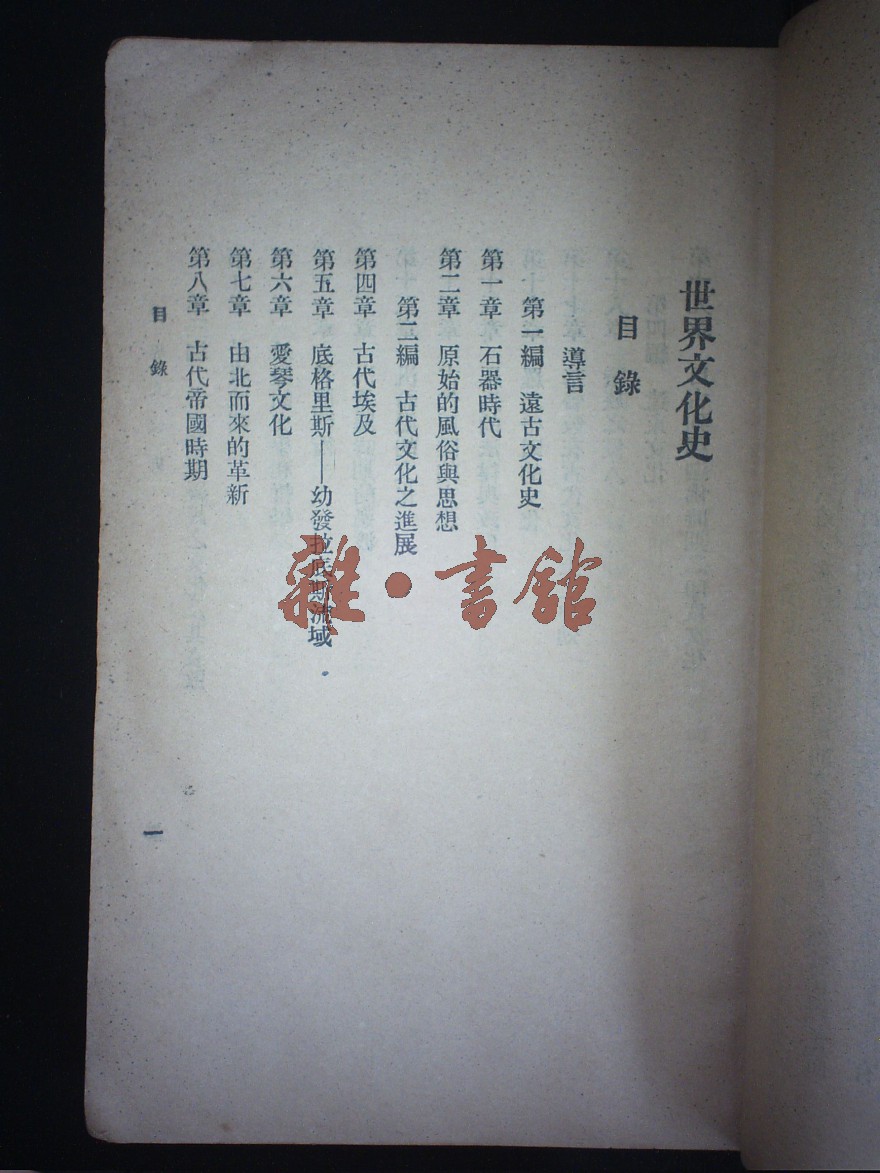 世界文化史
目錄
導言
第一編 遠古文化史
第一章 石器時代
第二章 原始的風俗與思想
第二編 古代文化之進展
第四章 古代埃及
第五章 底格里斯——幼發拉底斯流域
第六章 愛琴文化
第七章 由北而來的革新
第八章 古代帝國時期
目錄
一
雜·書館